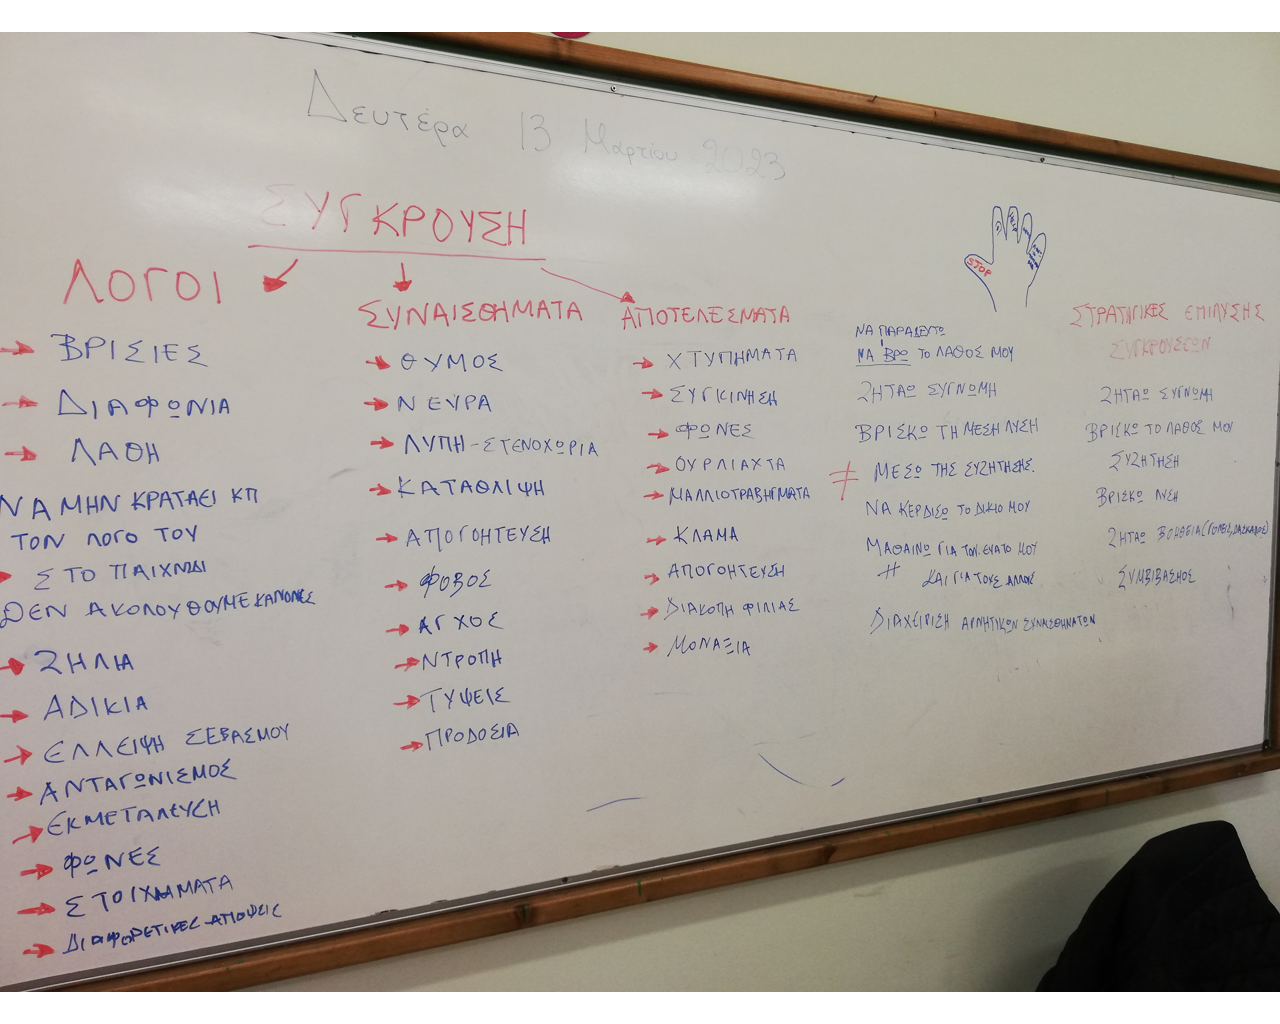 Δευτέρα 13 Μαρτίου 2023
ΣΥΓΚΡΟΥΣΗ
ΛΟΓΟΙ
ΒΡΙΣΙΕΣ
ΔΙΑΦΩΝΙΑ
ΛΑΘΗ
ΝΑ ΜΗΝ ΚΡΑΤΑΕΙ ΚΠ
ΤΟΝ ΛΟΓΟ ΤΟΥ
ΣΤΟ ΠΑΙΧΝΙΔΙ
ΔΕΝ ΑΚΟΛΟΥΘΟΥΜΕ ΚΑΝΟΝΕΣ
ΖΗΛΙΑ
ΑΔΙΚΙΑ
ΕΛΛΕΙΨΗ ΣΕΒΑΣΜΟΥ
ΑΝΤΑΓΩΝΙΣΜΟΣ
ΕΚΜΕΤΑΛΕΥΣΗ
ΦΩΝΕΣ
ΣΤΟΙΧΗΜΑΤΑ
ΔΙΑΦΟΡΕΤΙΚΕΣ ΑΠΟΨΕΙΣ
ΣΥΝΑΙΣΘΗΜΑΤΑ
ΘΥΜΟΣ
ΝΕΥΡΑ
ΛΥΠΗ-ΣΤΕΝΟΧΩΡΙΑ
ΚΑΤΑΘΛΙΨΗ
ΑΠΟΓΟΗΤΕΥΣΗ
ΦΟΒΟΣ
ΑΓΧΟΣ
ΝΤΡΟΠΗ
ΤΥΨΕΙΣ
ΠΡΟΔΟΣΙΑ
ΑΠΟΤΕΛΕΣΜΑΤΑ
ΧΤΥΠΗΜΑΤΑ
ΣΥΓΚΙΝΗΣΗ
ΦΩΝΕΣ
ΟΥΡΛΙΑΧΤΑ
ΜΑΛΛΙΟΤΡΑΒΗΓΜΑΤΑ
ΚΛΑΜΑ
ΑΠΟΓΟΗΤΕΥΣΗ
ΔΙΑΚΟΠΗ ΦΙΛΙΑΣ
ΜΟΝΑΞΙΑ
STOP
ΝΑ ΠΑΡΑΔΕΧΤΩ
ΝΑ ΒΡΩ ΤΟ ΛΑΘΟΣ ΜΟΥ
ΖΗΤΑΩ ΣΥΓΝΩΜΗ
ΒΡΙΣΚΩ ΤΗ ΜΕΣΗ ΛΥΣΗ
≠ ΜΕΣΩ ΤΗΣ ΣΥΖΗΤΗΣΗΣ.
ΝΑ ΚΕΡΔΙΣΩ ΤΟ ΔΙΚΙΟ ΜΟΥ
ΜΑΘΑΙΝΩ ΓΙΑ ΤΟΝ ΕΑΥΤΟ ΜΟΥ
ΚΑΙ ΓΙΑ ΤΟΥΣ ΑΛΛΟΥΣ
ΔΙΑΧΕΙΡΙΣΗ ΑΡΝΗΤΙΚΩΝ ΣΥΝΑΙΣΘΗΜΑΤΩΝ
ΣΤΡΑΤΗΓΙΚΕΣ ΕΠΙΛΥΣΗΣ
ΣΥΓΚΡΟΥΣΕΩΝ
ΖΗΤΑΩ ΣΥΓΝΩΜΗ
ΒΡΙΣΚΩ ΤΟ ΛΑΘΟΣ ΜΟΥ
ΣΥΖΗΤΗΣΗ
ΒΡΙΣΚΩ ΛΥΣΗ
ΖΗΤΑΩ ΒΟΗΘΕΙΑ (ΓΟΝΕΙΣ, ΔΑΣΚΑΛΟΣ)
ΣΥΜΒΙΒΑΣΜΟΣ